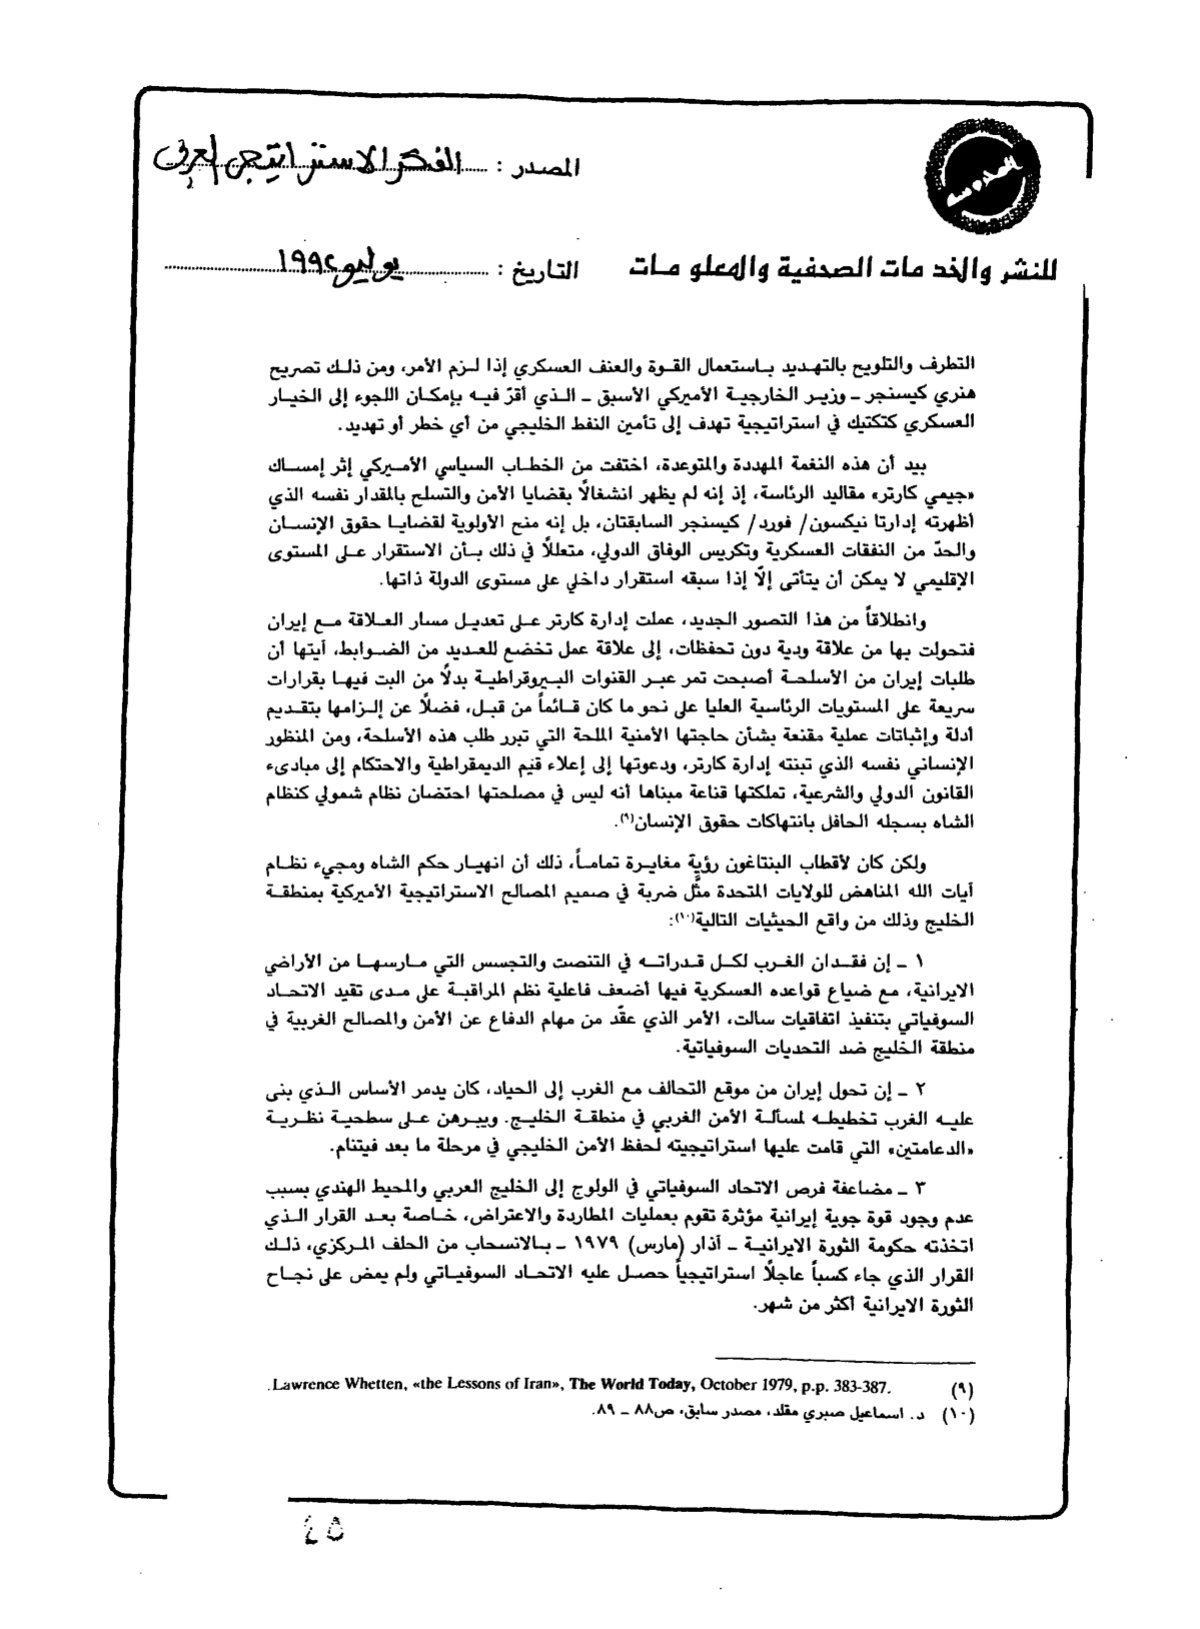 المصدر : الفكر الاستراتيجي العربي
للنشر والخدمات الصحفية والمعلومات
التاريخ : يوليو ١٩٩٢
التطرف والتلويح بالتهديد باستعمال القوة والعنف العسكري إذا لزم الأمر، ومن ذلك تصريح
هنري كيسنجر ــ وزير الخارجية الأميركي الأسبق ــ الذي أقرّ فيه بإمكان اللجوء إلى الخيار
العسكري كتكتيك في استراتيجية تهدف إلى تأمين النفط الخليجي من أي خطر أو تهديد.
بيد أن هذه النغمة المهددة والمتوعدة، اختفت من الخطاب السياسي الأميركي إثر إمساك
«جيمي كارتر» مقاليد الرئاسة، إذ إنه لم يظهر انشغالًا بقضايا الأمن والتسلح بالمقدار نفسه الذي
أظهرته إدارتا نيكسون/ فورد/ كيسنجر السابقتان، بل إنه منح الأولوية لقضايا حقوق الإنسان
والحدّ من النفقات العسكرية وتكريس الوفاق الدولي، متعللًا في ذلك بأن الاستقرار على المستوى
الإقليمي لا يمكن أن يتأتى إلّا إذا سبقه استقرار داخلي على مستوى الدولة ذاتها.
وانطلاقاً من هذا التصور الجديد، عملت إدارة كارتر على تعديل مسار العلاقة مع إيران
فتحولت بها من علاقة ودية دون تحفظات، إلى علاقة عمل تخضع للعديد من الضوابط، آيتها أن
طلبات إيران من الأسلحة أصبحت تمر عبر القنوات البيروقراطية بدلًا من البت فيها بقرارات
سريعة على المستويات الرئاسية العليا على نحو ما كان قائماً من قبل، فضلًا عن إلزامها بتقديم
أدلة وإثباتات عملية مقنعة بشأن حاجتها الأمنية الملحة التي تبرر طلب هذه الأسلحة، ومن المنظور
الإنساني نفسه الذي تبنته إدارة كارتر، ودعوتها إلى إعلاء قيم الديمقراطية والاحتكام إلى مبادىء
القانون الدولي والشرعية، تملكتها قناعة مبناها أنه ليس في مصلحتها احتضان نظام شمولي كنظام
الشاه بسجله الحافل بانتهاكات حقوق الإنسان(٩).
ولكن كان لأقطاب البنتاغون رؤية مغايرة تماماً، ذلك أن انهيار حكم الشاه ومجيء نظام
آيات الله المناهض للولايات المتحدة مثّل ضربة في صميم المصالح الاستراتيجية الأميركية بمنطقة
الخليج وذلك من واقع الحيثيات التالية(١٠):
١ ــ إن فقدان الغرب لكل قدراته في التنصت والتجسس التي مارسها من الأراضي
الايرانية، مع ضياع قواعده العسكرية فيها أضعف فاعلية نظم المراقبة على مدى تقيد الاتحاد
السوفياتي بتنفيذ اتفاقيات سالت، الأمر الذي عقّد من مهام الدفاع عن الأمن والمصالح الغربية في
منطقة الخليج ضد التحديات السوفياتية.
٢ ــ إن تحول إيران من موقع التحالف مع الغرب إلى الحياد، كان يدمر الأساس الذي بنى
عليه الغرب تخطيطه لمسألة الأمن الغربي في منطقة الخليج. ويبرهن على سطحية نظرية
«الدعامتين» التي قامت عليها استراتيجيته لحفظ الأمن الخليجي في مرحلة ما بعد فيتنام.
٣ ــ مضاعفة فرص الاتحاد السوفياتي في الولوج إلى الخليج العربي والمحيط الهندي بسبب
عدم وجود قوة جوية إيرانية مؤثرة تقوم بعمليات المطاردة والاعتراض، خاصة بعد القرار الذي
اتخذته حكومة الثورة الايرانية ــ آذار (مارس) ١٩٧٩ ــ بالانسحاب من الحلف المركزي، ذلك
القرار الذي جاء كسباً عاجلًا استراتيجياً حصل عليه الاتحاد السوفياتي ولم يمض على نجاح
الثورة الايرانية أكثر من شهر.
(٩) Lawrence Whetten, «the Lessons of Iran», The World Today, October 1979, p.p. 383-387.
(١٠) د. اسماعيل صبري مقلد، مصدر سابق، ص٨٨ ــ ٨٩.